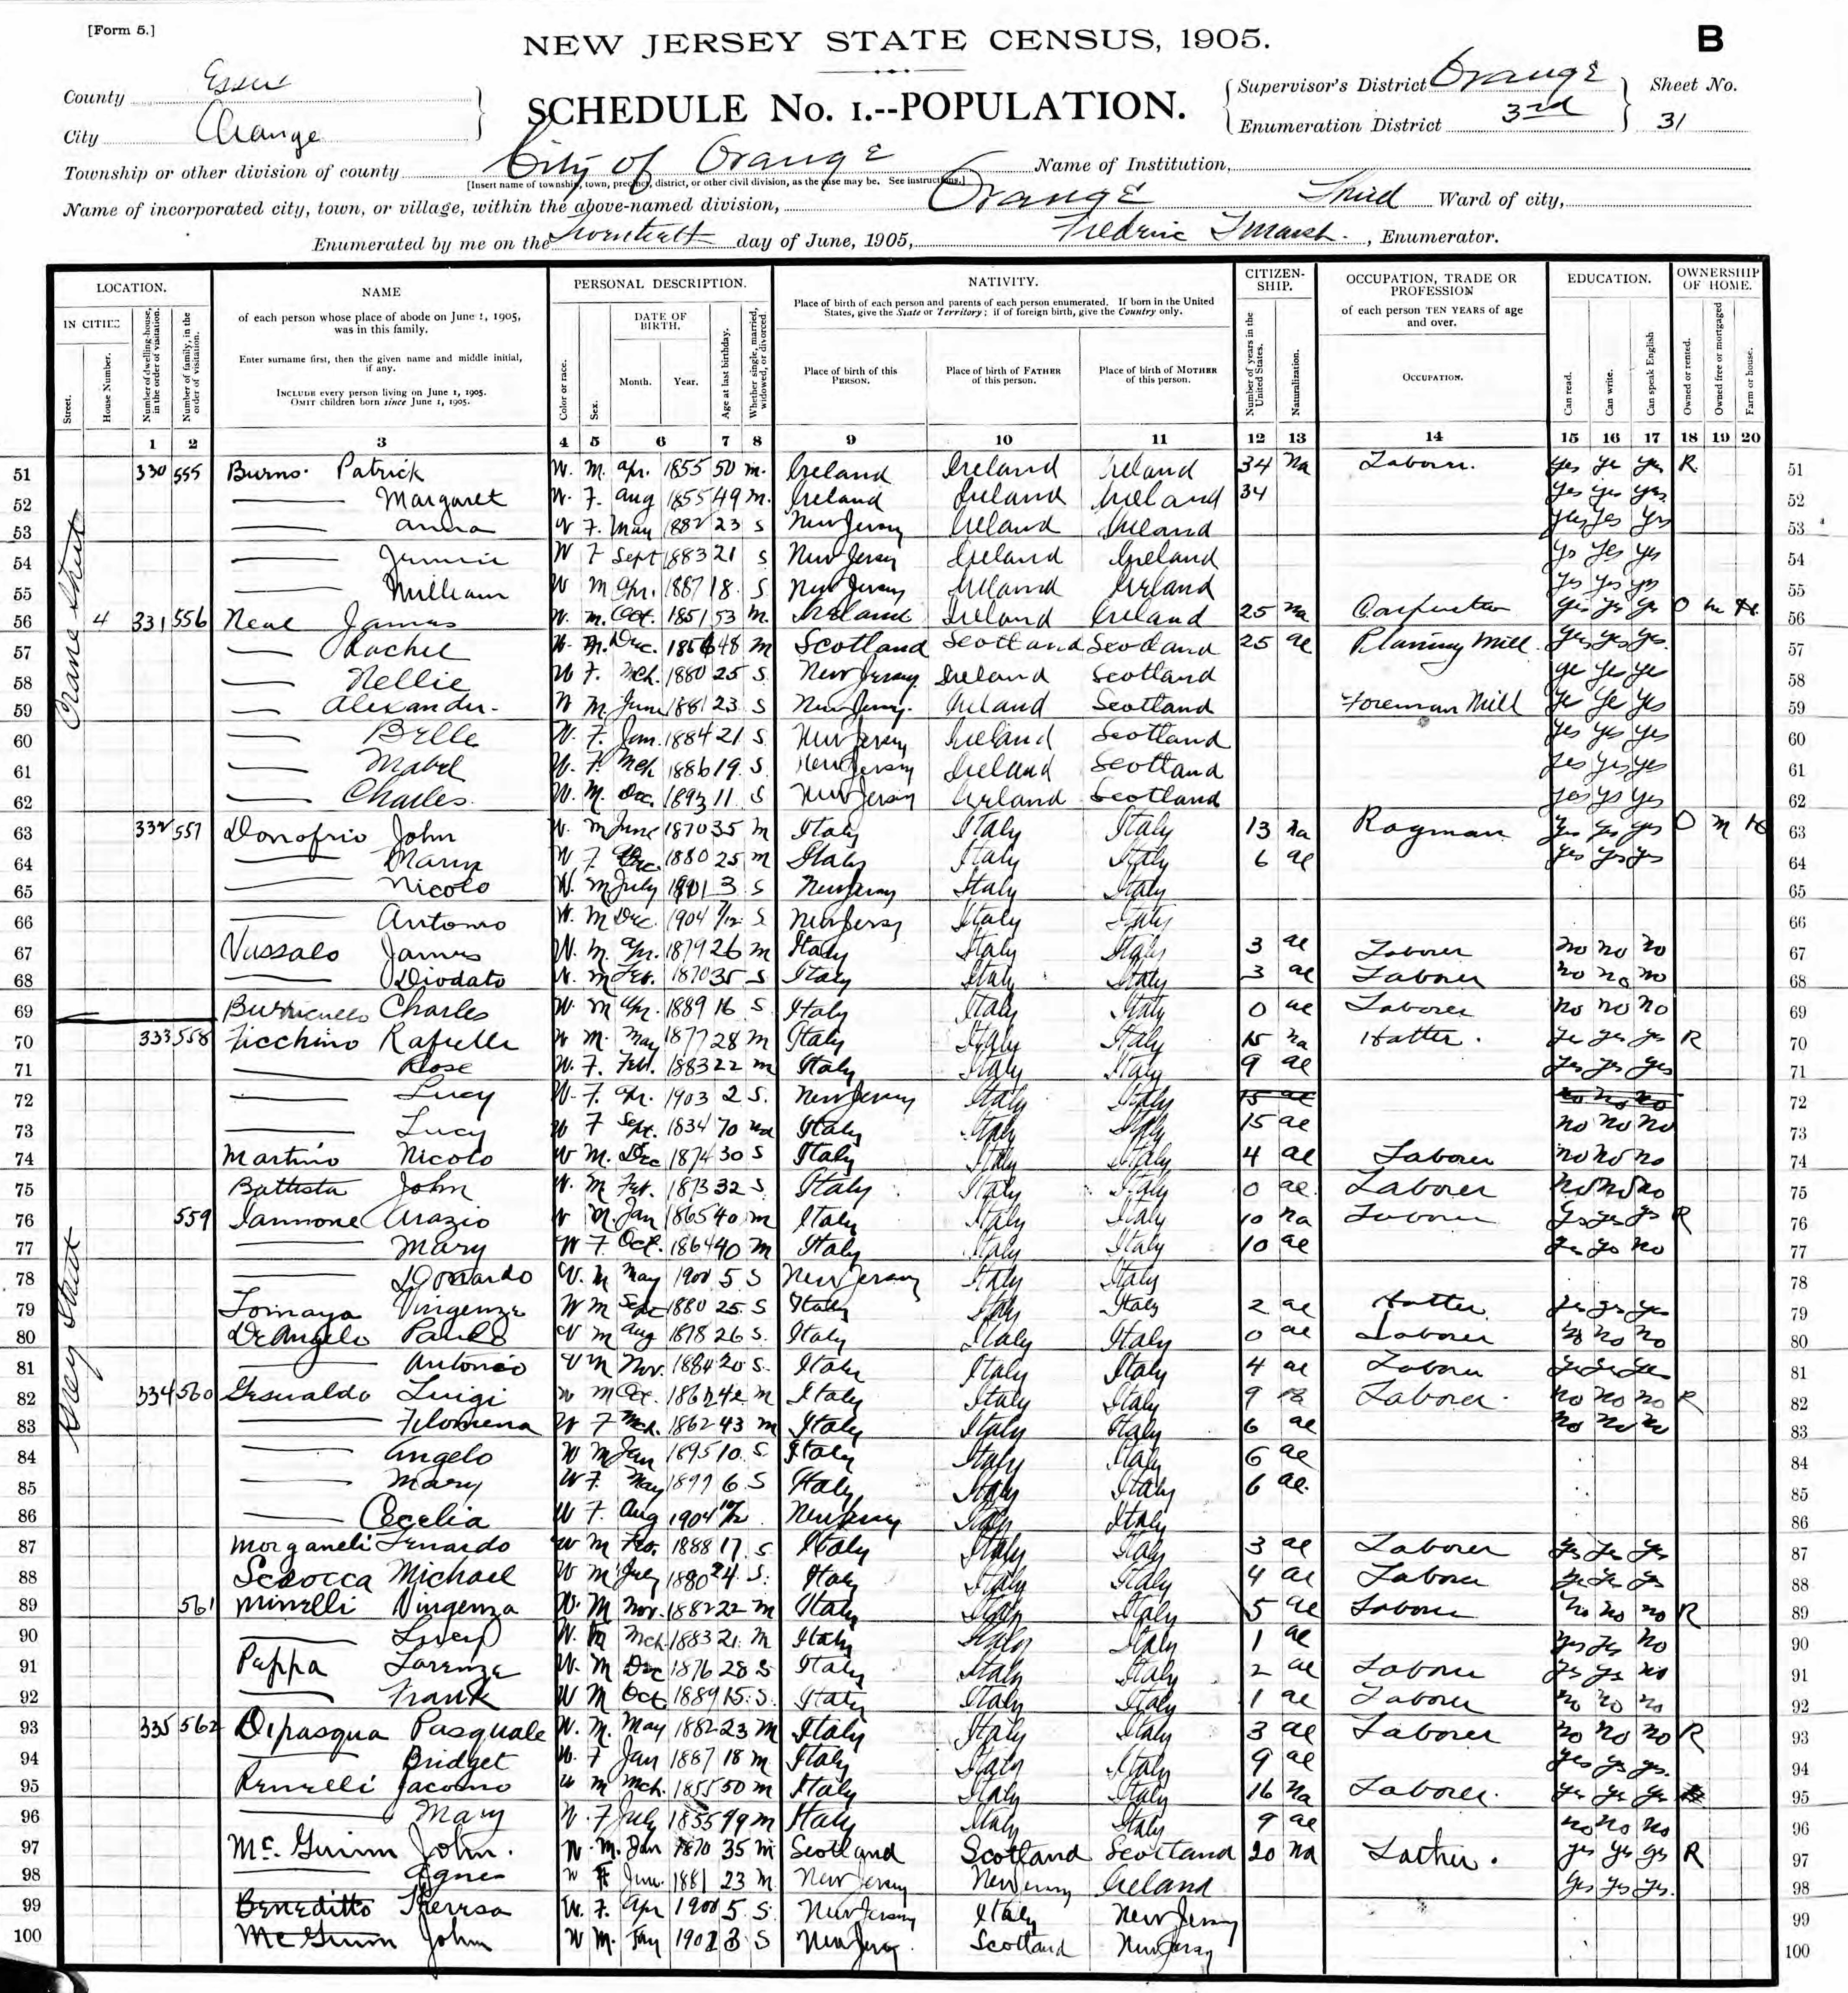 [Form 5.]
NEW JERSEY STATE CENSUS, 1905.
B
County Essex
SCHEDULE No. 1.--POPULATION.
Supervisor's District Orange
Sheet No.
City Orange
Enumeration District 3rd
31
Township or other division of county City of Orange Name of Institution,
[Insert name of township, town, precinct, district, or other civil division, as the case may be. See instructions.]
Name of incorporated city, town, or village, within the above-named division, Orange Third Ward of city,
Enumerated by me on the day of June, 1905, Fredric Marsh, Enumerator.
LOCATION. NAME PERSONAL DESCRIPTION. NATIVITY. CITIZEN-SHIP. OCCUPATION, TRADE OR PROFESSION EDUCATION. OWNERSHIP OF HOME.
IN CITIES
Street.
House Number.
Number of dwelling-house, in the order of visitation.
Number of family, in the order of visitation.
of each person whose place of abode on June 1, 1905, was in this family.
Enter surname first, then the given name and middle initial, if any.
INCLUDE every person living on June 1, 1905.
OMIT children born since June 1, 1905.
Color or race.
Sex.
DATE OF BIRTH.
Month. Year.
Age at last birthday.
Whether single, married, widowed, or divorced.
Place of birth of each person and parents of each person enumerated. If born in the United States, give the State or Territory; if of foreign birth, give the Country only.
Place of birth of this PERSON.
Place of birth of FATHER of this person.
Place of birth of MOTHER of this person.
Number of years in the United States.
Naturalization.
of each person TEN YEARS of age and over.
OCCUPATION.
Can read.
Can write.
Can speak English
Owned or rented.
Owned free or mortgaged
Farm or house.
1 2 3 4 5 6 7 8 9 10 11 12 13 14 15 16 17 18 19 20
Crane Street
51 330 555 Burns Patrick W. M. Apr. 1855 50 m. Ireland Ireland Ireland 34 na Laborer. yes ye yes R 51
52 Margaret W. F. Aug 1855 49 m. Ireland Ireland Ireland 34 yes yes yes 52
53 Anna W F. May 1882 23 S New Jersey Ireland Ireland yes yes yes 53
54 Jennie W F Sept 1883 21 S New Jersey Ireland Ireland ys yes ys 54
55 William W M Apr. 1887 18 S New Jersey Ireland Ireland yes yes yes 55
56 4 331 556 Neal James W. M. Oct. 1851 53 M. Ireland Ireland Ireland 25 na Carpenter yes ye ye O m H 56
57 Rachel W. Dec. 1856 48 M Scotland Scotland Scotland 25 al Planing Mill yes yes yes 57
58 Nellie W F. Mch. 1880 25 S New Jersey Ireland Scotland ye yes ye 58
59 Alexander W M June 1881 23 S New Jersey Ireland Scotland Foreman Mill ye ye yes 59
60 Belle W. F. Jan. 1884 21 S. New Jersey Ireland Scotland yes yes yes 60
61 Mabel W. F. Mch 1886 19. S. New Jersey Ireland Scotland yes yes yes 61
62 Charles W. M. Dec. 1893 11 S New Jersey Ireland Scotland yes ys yes 62
63 332 557 Donofrio John W. M June 1870 35 M Italy Italy Italy 13 na Ragman yes yes yes O M H 63
64 W F Dec. 1880 25 M Italy Italy Italy 6 al yes yes yes 64
65 Nicolo W. M July 1901 3 S New Jersey Italy Italy 65
66 Antonio W. M Dec. 1904 S New Jersey Italy Italy 66
67 Vussalo James W. M. Apr. 1879 26 M Italy Italy Italy 3 al Laborer no no no 67
68 Diodato W. M Feb. 1870 35 S Italy Italy Italy 3 al Laborer no no no 68
69 Charles W M Apr. 1889 16 S. Italy Italy Italy 0 al Laborer no no no 69
70 333 558 Ficchino Rafuelle W M. May 1877 28 M Italy Italy Italy 15 na Hatter. ye yes yes R 70
71 Rose W. F. Feb. 1883 22 M Italy Italy Italy 9 al yes yes yes 71
72 Lucy W. F. Apr. 1903 2 S. New Jersey Italy Italy 15 al no no no 72
73 Lucy W F Sept. 1834 70 wd Italy Italy Italy 15 al no no no 73
74 Martino Nicolo W M. Dec 1874 30 S Italy Italy Italy 4 al Laborer no no no 74
75 Battista John W. M Feb. 1873 32 S Italy Italy Italy 0 al Laborer no no no 75
76 559 Iannone Arazio W M. Jan 1865 40 M Italy Italy Italy 10 na Laborer yes yes ys R 76
77 Mary W F. Oct. 1864 40 M Italy Italy Italy 10 al ye ye no 77
78 Leonardo W. M May 1900 5 S New Jersey Italy Italy 78
Gray Street
79 Tomaya Vingenza W M Sept 1880 25 S Italy Italy Italy 2 al Hatter ye yes yes 79
80 DeAngelo Paulo W M Aug 1878 26 S. Italy Italy Italy 0 al Laborer no no no 80
81 Antonio W M Nov. 1884 20 S. Italy Italy Italy 4 al Laborer yes yes yes 81
82 334 560 Gesualdo Luigi W M Oct. 1862 42 M Italy Italy Italy 9 Laborer. no no no R 82
83 Filomena W F Mch. 1862 43 M Italy Italy Italy 6 al no no no 83
84 Angelo W M Jan 1895 10 S. Italy Italy Italy 6 al 84
85 Mary W F. May 1899 6 S Italy Italy Italy 6 al. 85
86 Cecelia W F. Aug 1904 New Jersey Italy Italy 86
87 Morganeli Lenardo W M Feb. 1888 17 S Italy Italy Italy 3 al Laborer yes yes yes 87
88 Scrocca Michael W M July 1880 24 S. Italy Italy Italy 4 al Laborer ye yes ye 88
89 561 Minelli Vingenza W. M Nov. 1882 22 M Italy Italy Italy 5 al Laborer no no no R 89
90 Lucy W. Mch. 1883 21. M Italy Italy Italy 1 al yes ye no 90
91 Puppa Lorenza W. M Dec 1876 28 S Italy Italy Italy 2 al Laborer ye ye no 91
92 Frank W M Oct 1889 15. S. Italy Italy Italy 1 al Laborer no no no 92
93 335 562 Dipasqua Pasquale W. M. May 1882 23 M Italy Italy Italy 3 al Laborer no no no R 93
94 Bridget W. F Jan 1887 18 M Italy Italy Italy 9 al yes yes yes. 94
95 Renelli Jacomo W M Mch. 1855 50 M Italy Italy Italy 16 na Laborer. ye ye ye 95
96 Mary W. F July 1855 49 M Italy Italy Italy 9 al no no no 96
97 Mc. Guinn John. W. M. Jan 1870 35 M Scotland Scotland Scotland 20 na Lather. yes yes yes R 97
98 Agnes W F June 1881 23 M New Jersey New Jersey Ireland yes yes yes. 98
99 Beneditto Theresa W. F. Apr 1900 5 S. New Jersey Italy New Jersey 99
100 McGuinn John W M. Jan 1902 3 S New Jersey Scotland New Jersey 100